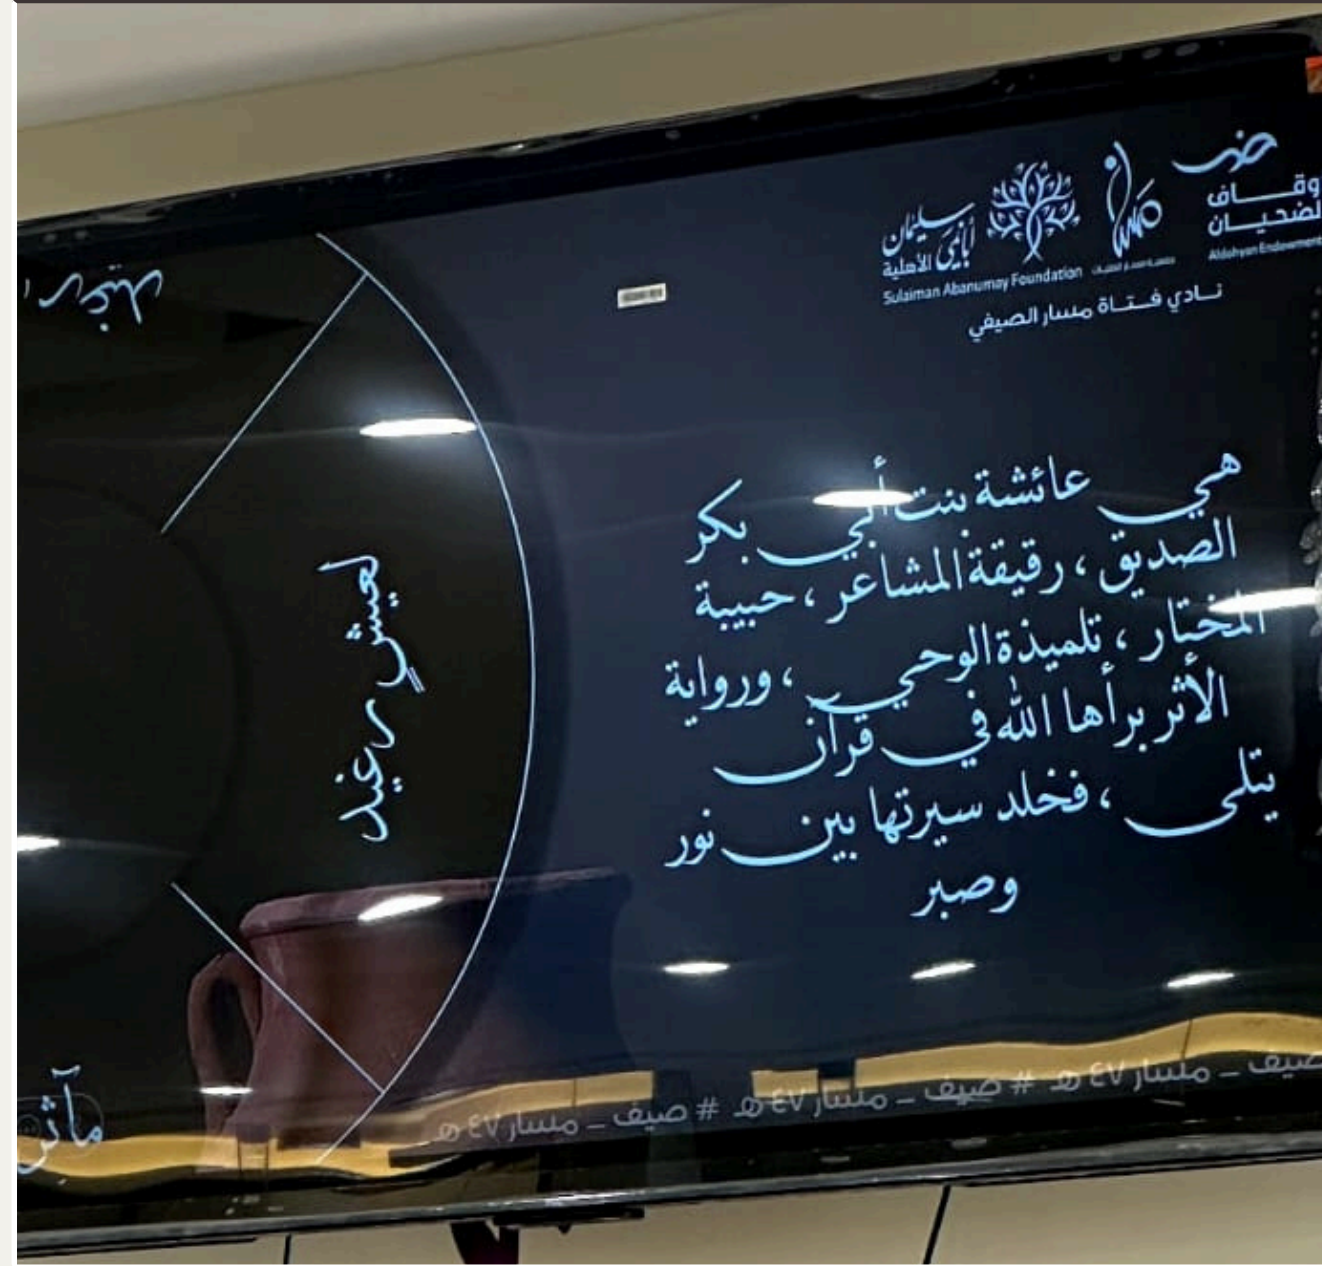 وقاف
لضحيان
Aldohyan Endowment
مسار
سليمان
أبانمي
الأهلية
Sulaiman Abanumay Foundation
نادي فتاة مسار الصيفي
هي عائشة بنت أبي بكر
الصديق ، رقيقة المشاعر ، حبيبة
المختار ، تلميذة الوحي ، ورواية
الأثر برأها الله في قرآن
يتلى ، فخلد سيرتها بين نور
وصبر
لعيشٍ رغيد
رغيد
مآثر
صيف _ مسار ٤٧ هـ # صيف _ مسار ٤٧ هـ # صيف _ مسار ٤٧ هـ